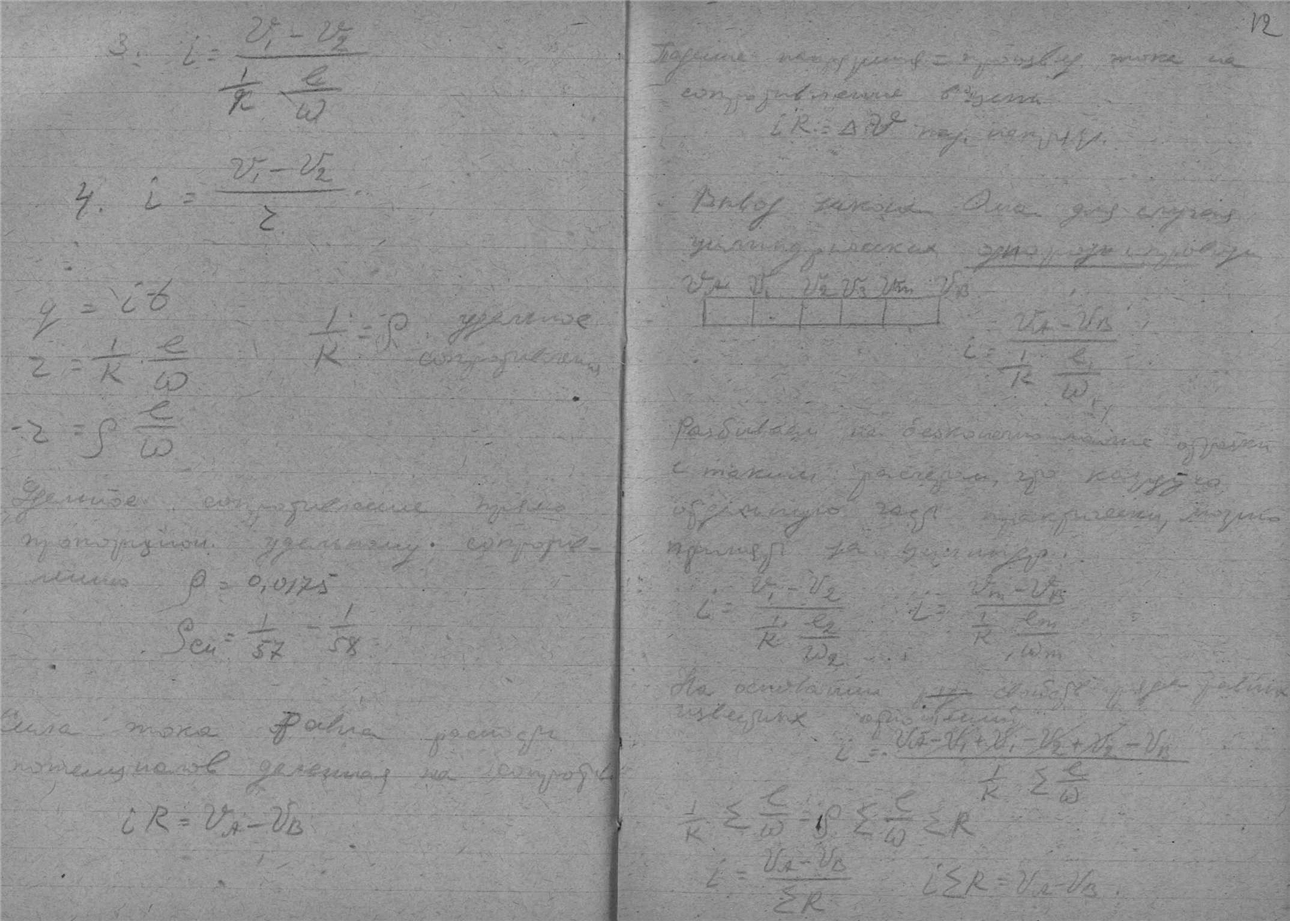 3. i = (v₁ − v₂) / (1/k · l/ω)
4. i = (v₁ − v₂) / r
q = it
r = 1/k · l/ω
1/k = ρ удельное
сопротивлени
r = ρ l/ω
сопротивление прямо
пропорцион. удельному сопротив-
лению ρ = 0,0175
ρ = 1/57 − 1/58
Сила тока равна разности
потенциалов деленная на сопротив
iR = v_A − v_B
12
Падение напряжения = произвед тока на
сопротивление цепи
iR = Δv пад. напряж.
Вывод закона Ома для случая
цилиндрических однородн проводн
v_A v₁ v₂ v₃ v_m v_B
i = (v_A − v_B) / (1/k · l₁/ω₁)
Разбиваем на бесконечно малые отрезки
с таким расчетом, что каждую
отдельную часть практически можно
принять за цилиндр.
i = (v₁ − v₂) / (1/k · l₂/ω₂) .... i = (v_m − v_B) / (1/k · l_m/ω_m)
На основании свойств ряда равных
отношений
i = (v_A − v₁ + v₁ − v₂ + v₂ − v_B) / (1/k Σ l/ω)
1/k Σ l/ω = ρ Σ l/ω ΣR
i = (v_A − v_B) / ΣR iΣR = v_A − v_B.